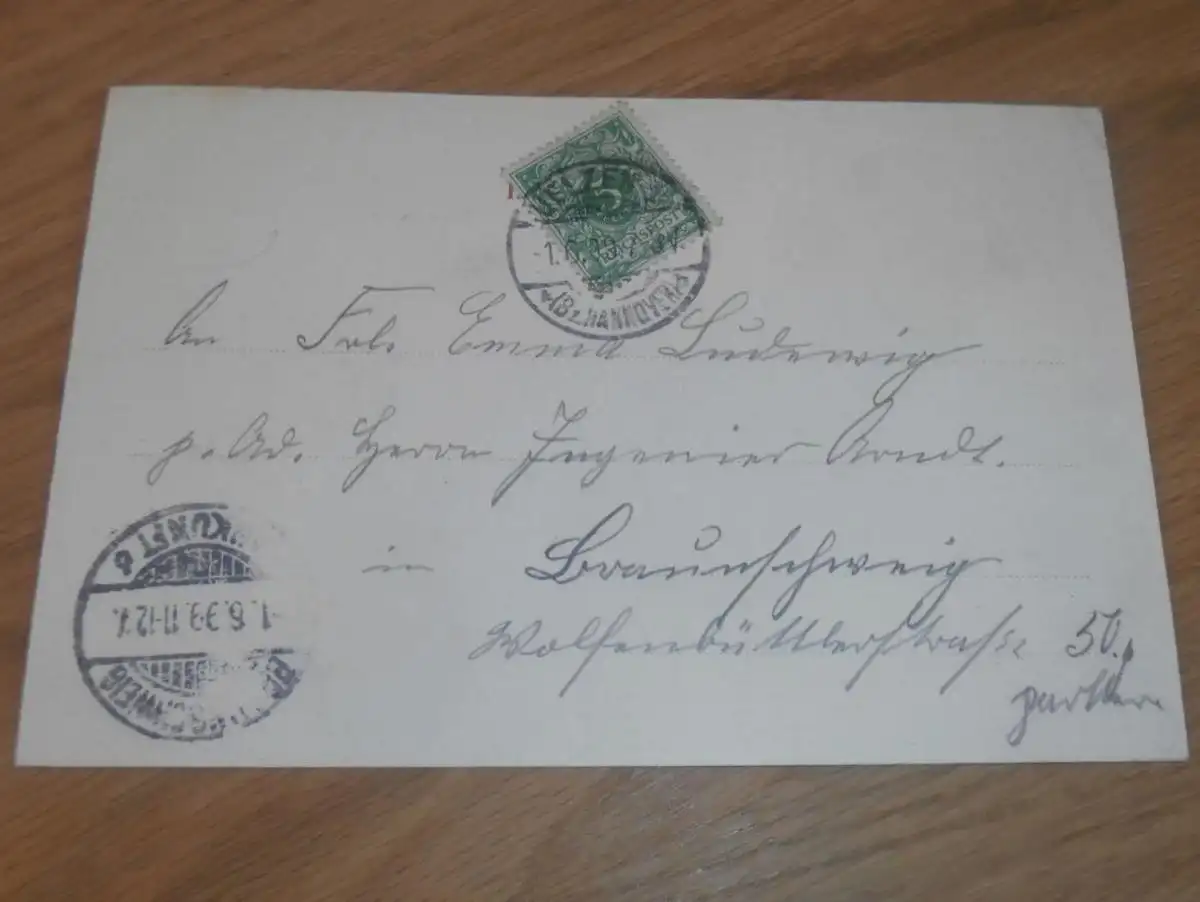 5
REICHSPOST
UELZEN
-1.6.99.
*(Bz. HANNOVER)*
An Frl. Emma Ludewig
p. Ad. Herrn Ingenier Arndt.
in Braunschweig
Wolfenbüttlerstraße 50.
parterre
BRAUNSCHWEIG
-1.6.99. 11-12 V.
ANKUNFT